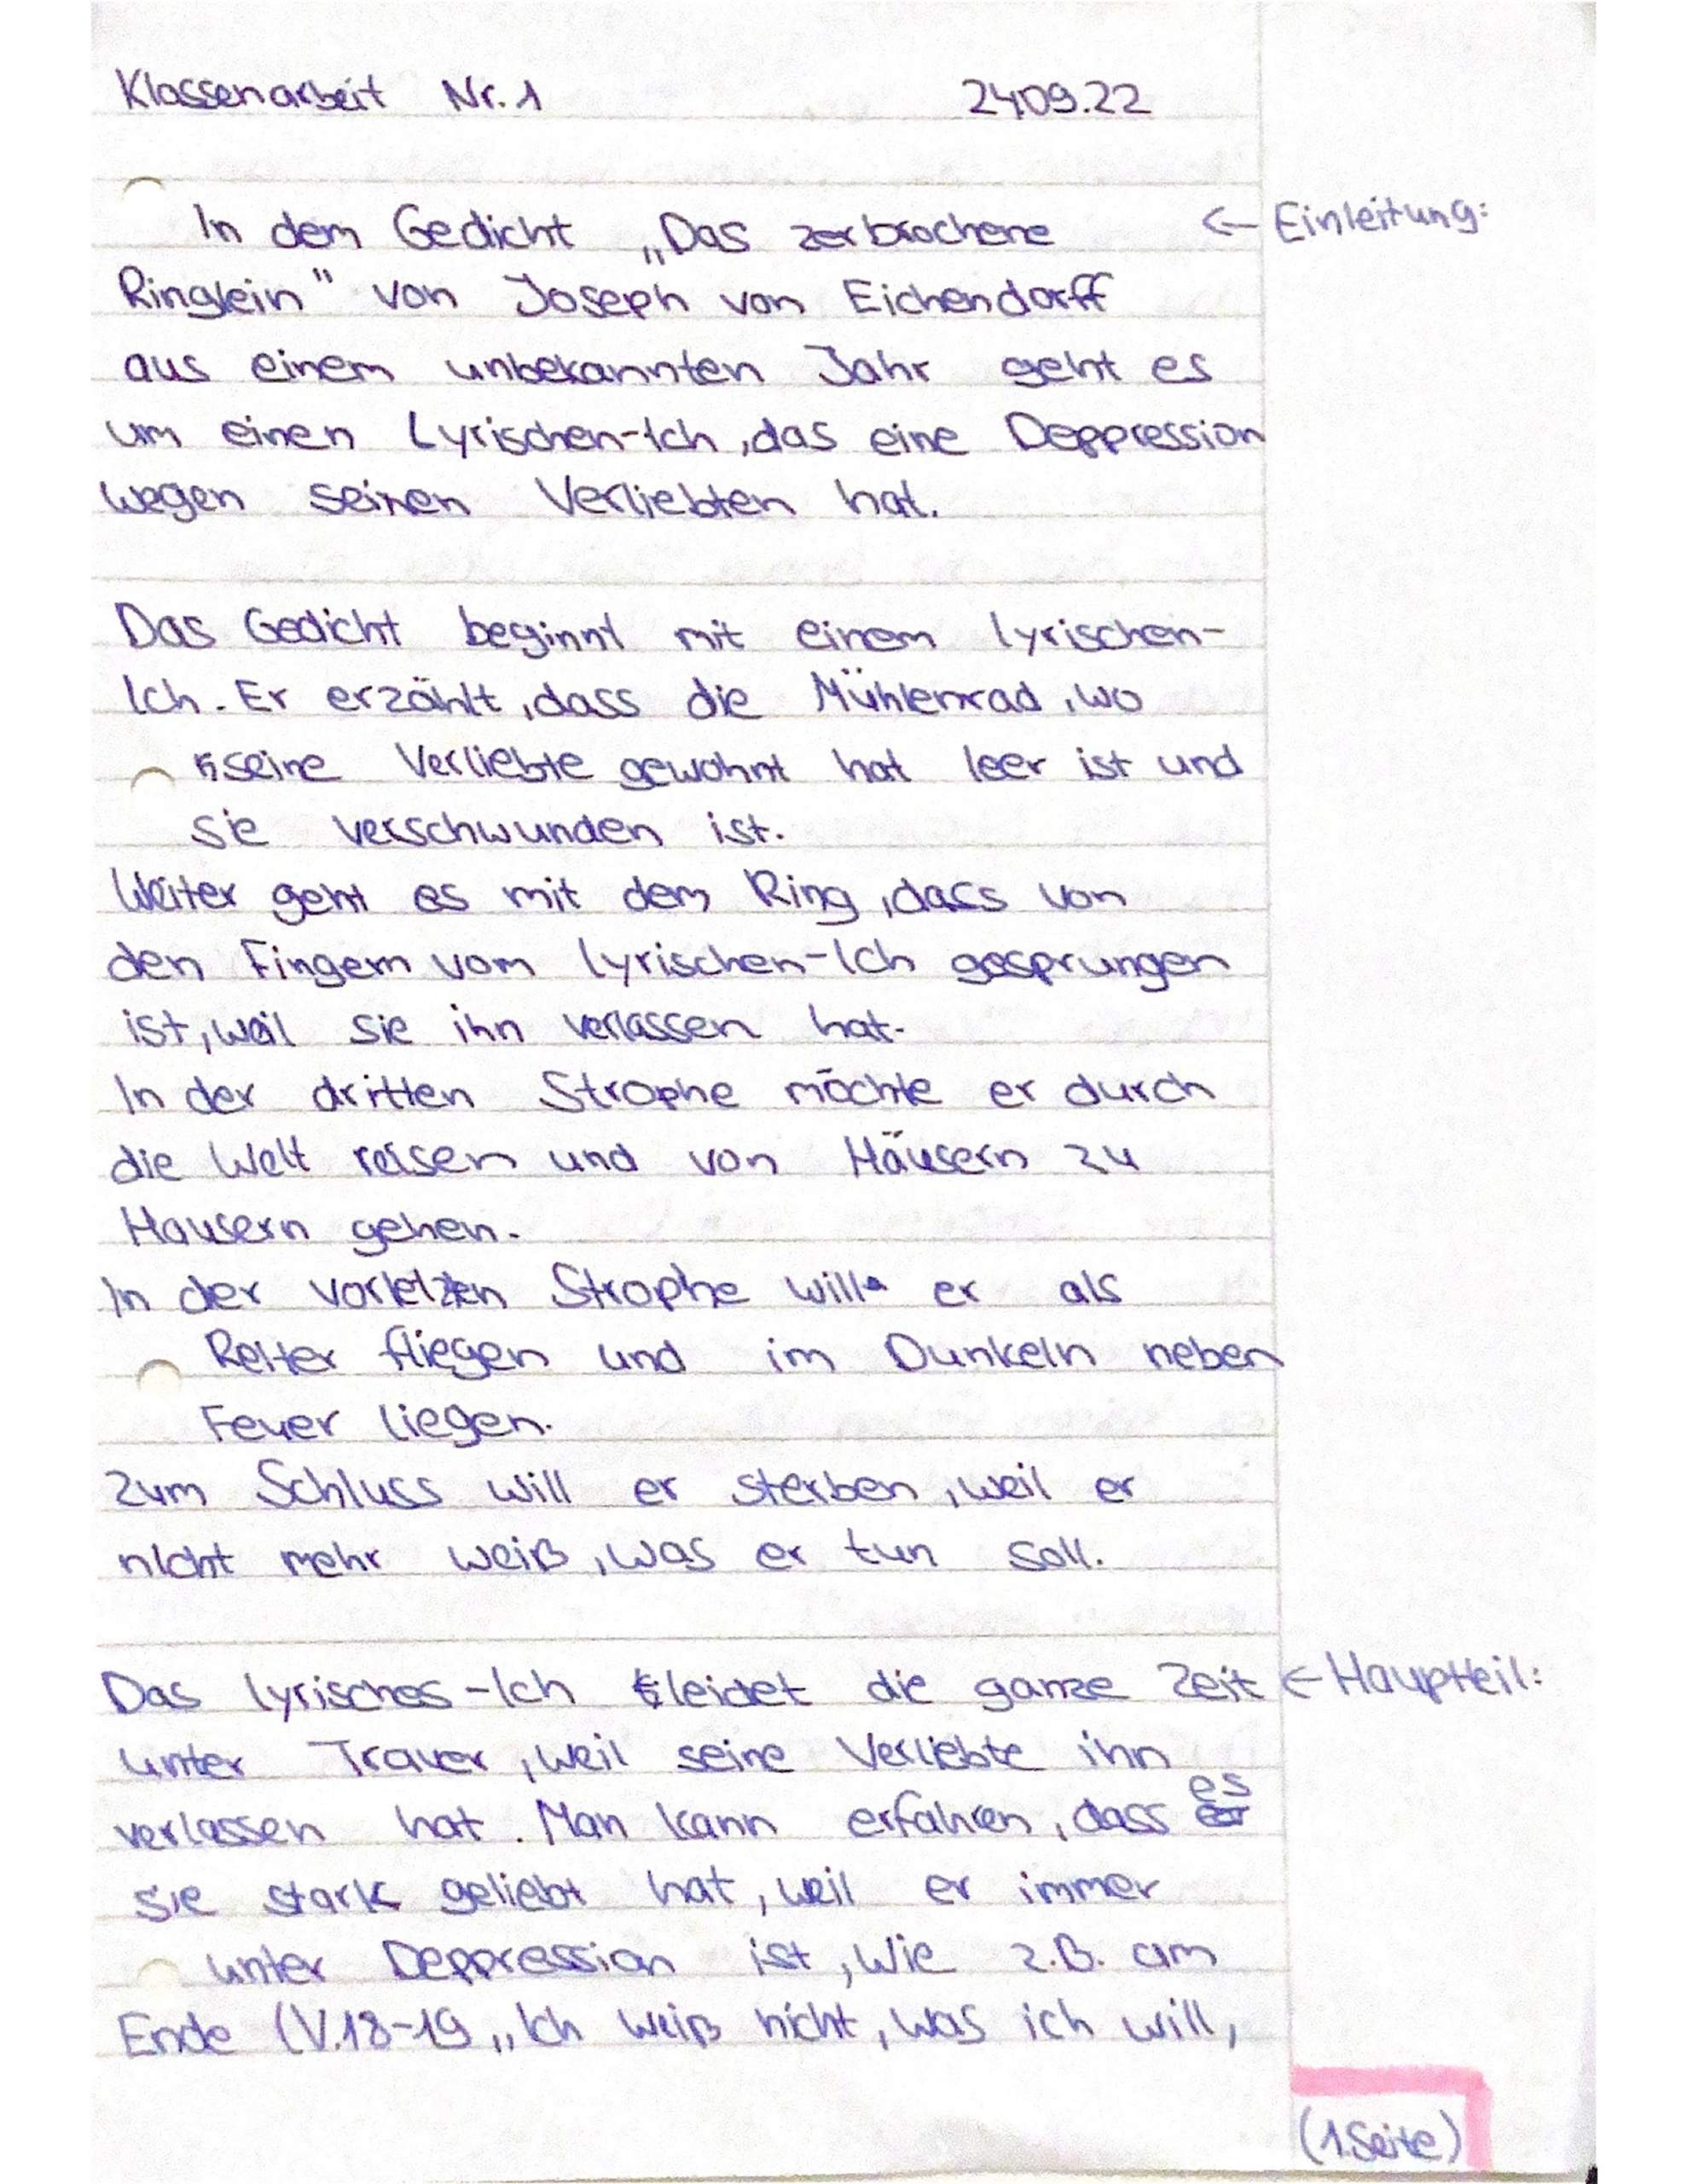 Klassenarbeit Nr. 1 24.09.22
In dem Gedicht „Das zerbrochene ← Einleitung:
Ringlein" von Joseph von Eichendorff
aus einem unbekannten Jahr geht es
um einen Lyrischen-Ich, das eine Deppression
wegen seinen Verliebten hat.
Das Gedicht beginnt mit einem lyrischen-
Ich. Er erzählt, dass die Mühlenrad, wo
seine Verliebte gewohnt hat leer ist und
sie verschwunden ist.
Weiter geht es mit dem Ring, dass von
den Fingern vom lyrischen-Ich gesprungen
ist, weil sie ihn verlassen hat.
In der dritten Strophe möchte er durch
die Welt reisen und von Häusern zu
Hausern gehen.
In der vorletzten Strophe will er als
Reiter fliegen und im Dunkeln neben
Feuer liegen.
Zum Schluss will er sterben, weil er
nicht mehr weiß, was er tun soll.
Das lyrisches-Ich leidet die ganze Zeit ← Hauptteil:
unter Trauer, weil seine Verliebte ihn
verlassen hat. Man kann erfahren, dass es
sie stark geliebt hat, weil er immer
unter Deppression ist, wie z.B. am
Ende (V.18-19 „Ich weiß nicht, was ich will,
(1.Seite)